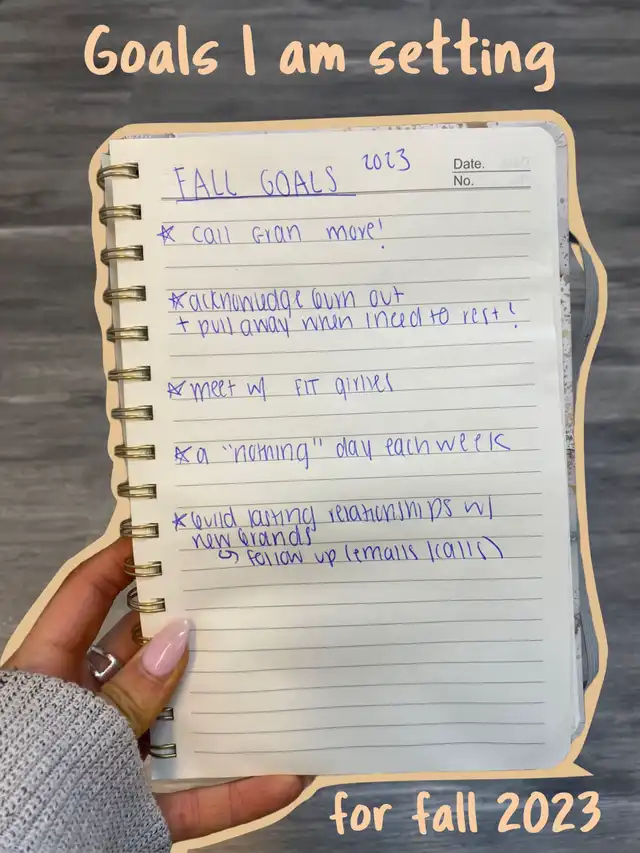 Goals I am setting
FALL GOALS 2023
Date.
No.
☆ call Gran more!
☆ acknowledge burn out
+ pull away when I need to rest!
☆ meet w/ FIT girlies
☆ a "nothing" day each week
☆ build lasting relationships w/
new brands
↳ follow up (emails/calls)
for fall 2023